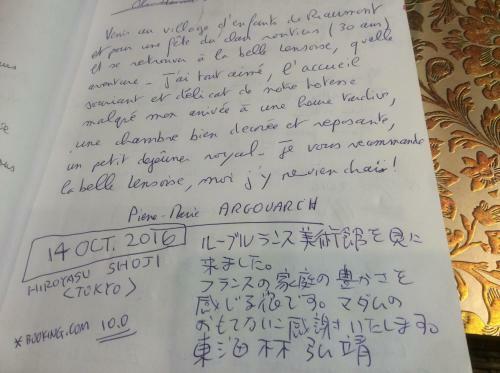 Venir au village d'enfants de Riaumont
et pour une fête du clan routiers (30 ans)
et se retrouver à la belle Lensoise, quelle
aventure - j'ai tout aimé, l'accueil
souriant et délicat de notre hotesse
malgré mon arrivée à une heure tardive,
une chambre bien decorée et reposante,
un petit dejeuner royal - je vous recommande
la belle Lensoise, moi j'y reviendrai!
Pierre-Marie ARGOUARCH
14 OCT. 2016
HIROYASU SHOJI
(TOKYO)
*BOOKING.COM 10.0
ルーブルランス美術館を見に
来ました。
フランスの家庭の豊かさを
感じる宿です。マダムの
おもてなしに感謝いたします。
東海林 弘靖